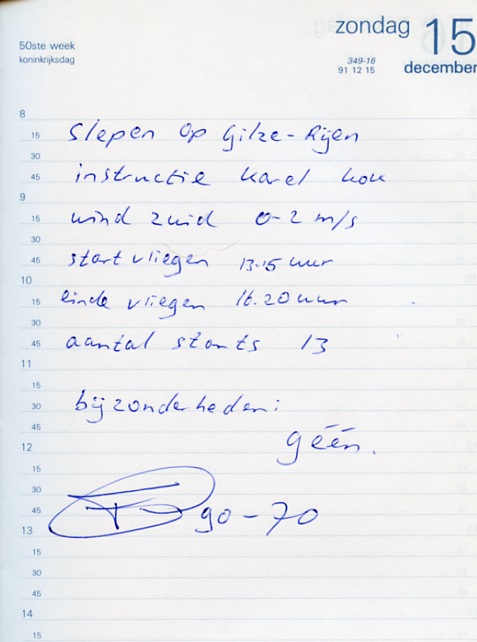 zondag 15
50ste week
koninkrijksdag
349-16
91 12 15
december
8
15 Slepen op Gilze-Rijen
30
45 instructie Karel
9
15 wind zuid 0-2 m/s
30
45 start vliegen 13.15 uur
10
15 einde vliegen 16.20 uur
30
45 aantal starts 13
11
15
30 bijzonderheden:
45
12 géén.
15
30
45 90-70
13
15
30
45
14
15